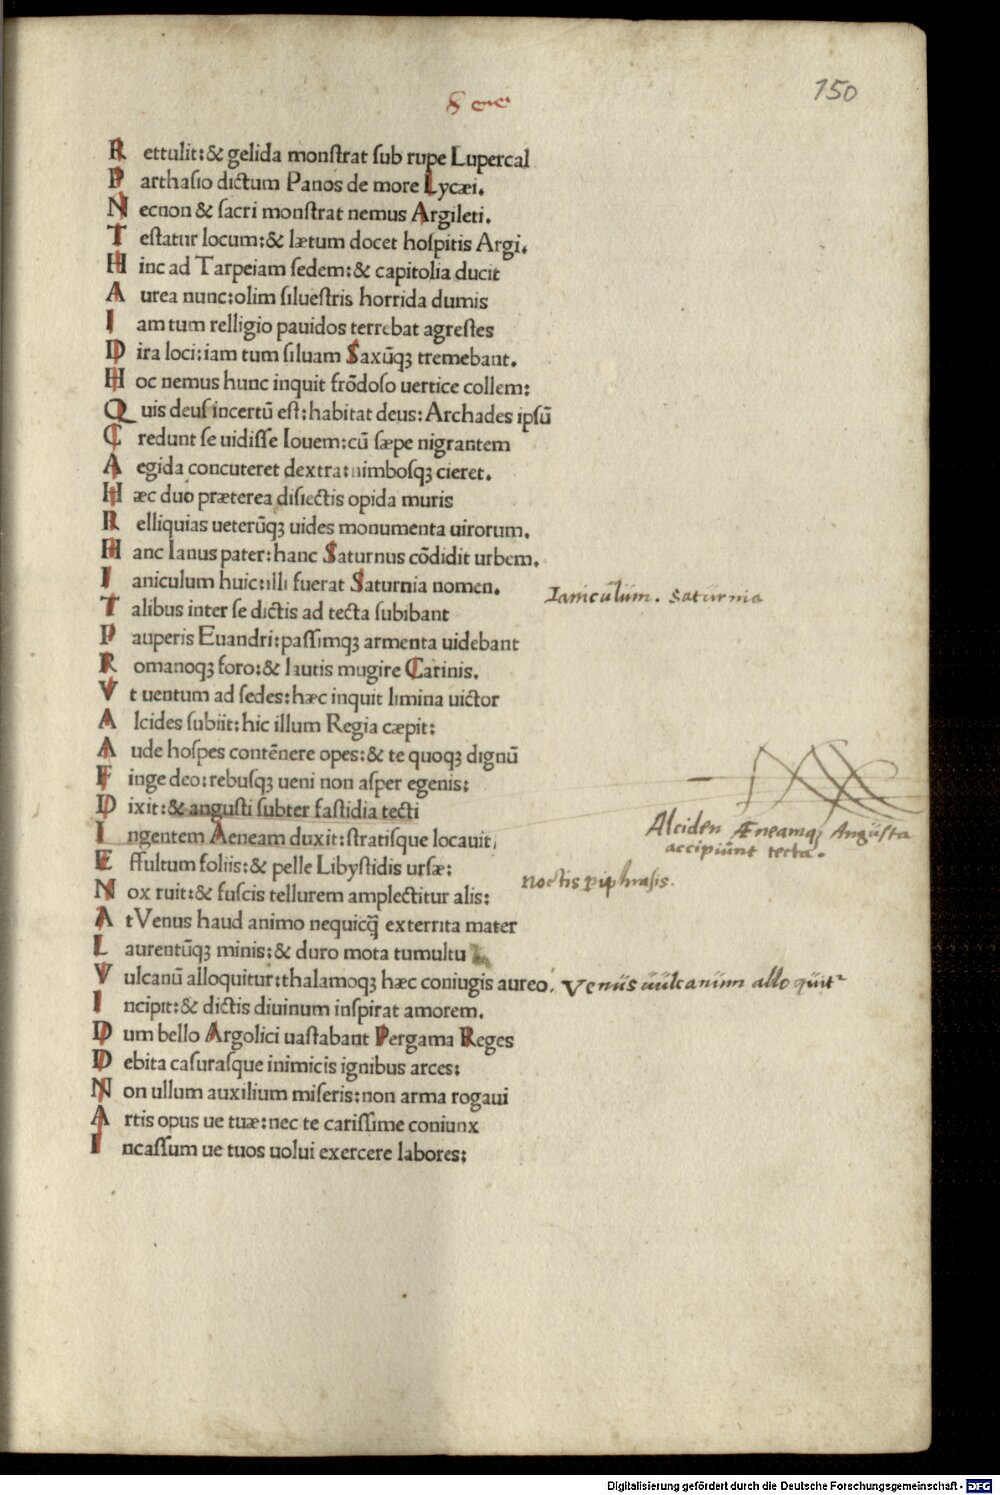 150
R ettulit: & gelida monſtrat ſub rupe Lupercal
P arrhaſio dictum Panos de more Lycæi.
N ecnon & ſacri monſtrat nemus Argileti.
T eſtatur locum: & lætum docet hoſpitis Argi.
H inc ad Tarpeiam ſedem: & capitolia ducit
A urea nunc: olim ſilueſtris horrida dumis
I am tum relligio pauidos terrebat agreſtes
D ira loci: iam tum ſiluam Saxūqꝫ tremebant.
H oc nemus hunc inquit frōdoſo uertice collem:
Q uis deuſ incertū eſt: habitat deus: Archades ipſū
C redunt ſe uidiſſe Iouem: cū ſæpe nigrantem
A egida concuteret dextra: nimboſqꝫ cieret.
H æc duo præterea diſiectis opida muris
R elliquias ueterūqꝫ uides monumenta uirorum.
H anc Ianus pater: hanc Saturnus cōdidit urbem.
I aniculum huic: illi fuerat Saturnia nomen.
Ianiculum. Saturnia
T alibus inter ſe dictis ad tecta ſubibant
P auperis Euandri: paſſimqꝫ armenta uidebant
R omanoqꝫ foro: & lautis mugire Carinis.
V t uentum ad ſedes: hæc inquit limina uictor
A lcides ſubiit: hic illum Regia cæpit:
A ude hoſpes contēnere opes: & te quoqꝫ dignū
F inge deo: rebuſqꝫ ueni non aſper egenis:
D ixit: & anguſti ſubter faſtidia tecti
I ngentem Aeneam duxit: ſtratiſque locauit,
Alciden Æneamqꝫ Angusta
accipiunt tecta.
E ffultum foliis: & pelle Libyſtidis urſæ:
noctis piphrasis.
N ox ruit: & fuſcis tellurem amplectitur alis:
A t Venus haud animo nequicq̄ exterrita mater
L aurentūqꝫ minis: & duro mota tumultu
V ulcanū alloquitur: thalamoqꝫ hæc coniugis aureo.
Venus uulcanum alloquit
I ncipit: & dictis diuinum inſpirat amorem.
D um bello Argolici uaſtabant Pergama Reges
D ebita caſuraſque inimicis ignibus arces:
N on ullum auxilium miſeris: non arma rogaui
A rtis opus ue tuæ: nec te cariſſime coniunx
I ncaſſum ue tuos uolui exercere labores:
Digitalisierung gefördert durch die Deutsche Forschungsgemeinschaft - DFG